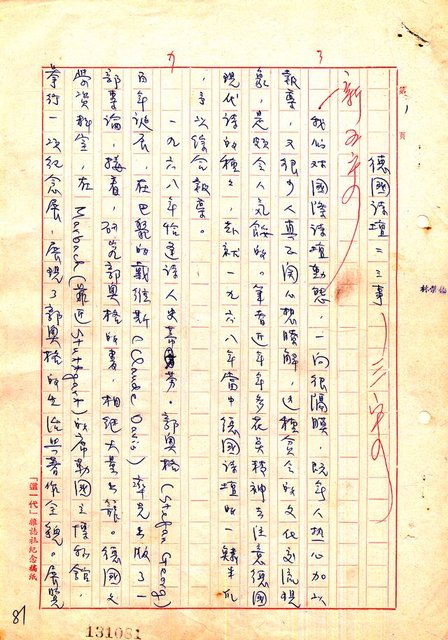 第 1 頁
德國詩壇二三事
我們對國際詩壇動態，一向很隔膜，既无人热心加以
報導，又很少人真正関心想瞭解，這種貧乏的文化交流現
象，是頗令人气餒的。筆者近年多花矣精神去注意德國
現代詩的種々，去就一九六八年當中德國詩壇的一鱗半爪
，予以綜合報導。
一九六八年恰逢詩人史蒂芬。郭奧格(Stefan Georg)
百年诞辰，在巴黎的戴維斯(Claude Davis)率先出版了一
部專論，接着，研究郭奧格的書，相継大量出籠。德國文
學資料室，在Marbach(靠近Stuttgart)的席勒國立博物館，
舉行一次紀念展，展現了郭奧格的生活与著作全貌。展覽
「這一代」雜誌社紀念稿紙
131081
81